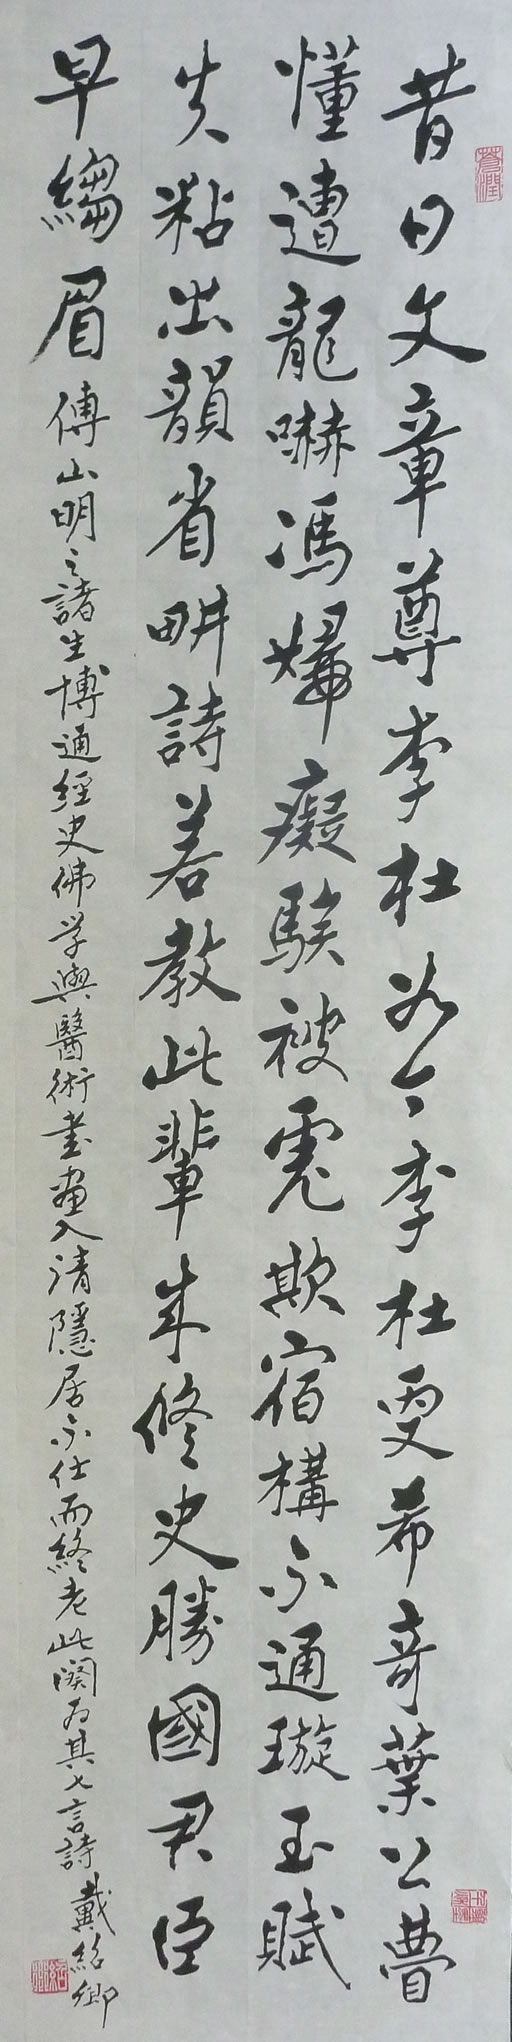 昔日文章尊李杜只今李杜更希奇葉公曹
懂遭龍嚇馮婦癡騃被虎欺宿構不通璇玉賦
失粘出韻省畊詩若教此輩来修史勝國君臣
早縐眉
傅山明之諸生博通經史佛学與醫術書畫入清隱居不仕而終老此闋为其七言詩 戴紹卿